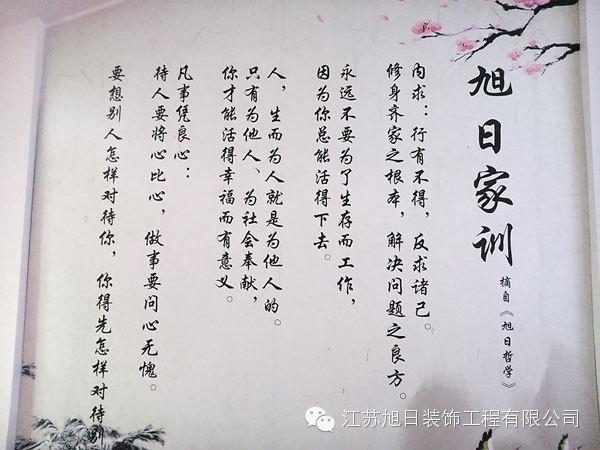 旭日家训
摘自《旭日哲学》
内求：行有不得，反求诸己。
修身齐家之根本，解决问题之良方。
永远不要为了生存而工作，
因为你总能活得下去。
人，生而为人就是为他人的。
只有为他人、为社会奉献，
你才能活得幸福而有意义。
凡事凭良心：
待人要将心比心，做事要问心无愧。
要想别人怎样对待你，你得先怎样对待别
江苏旭日装饰工程有限公司